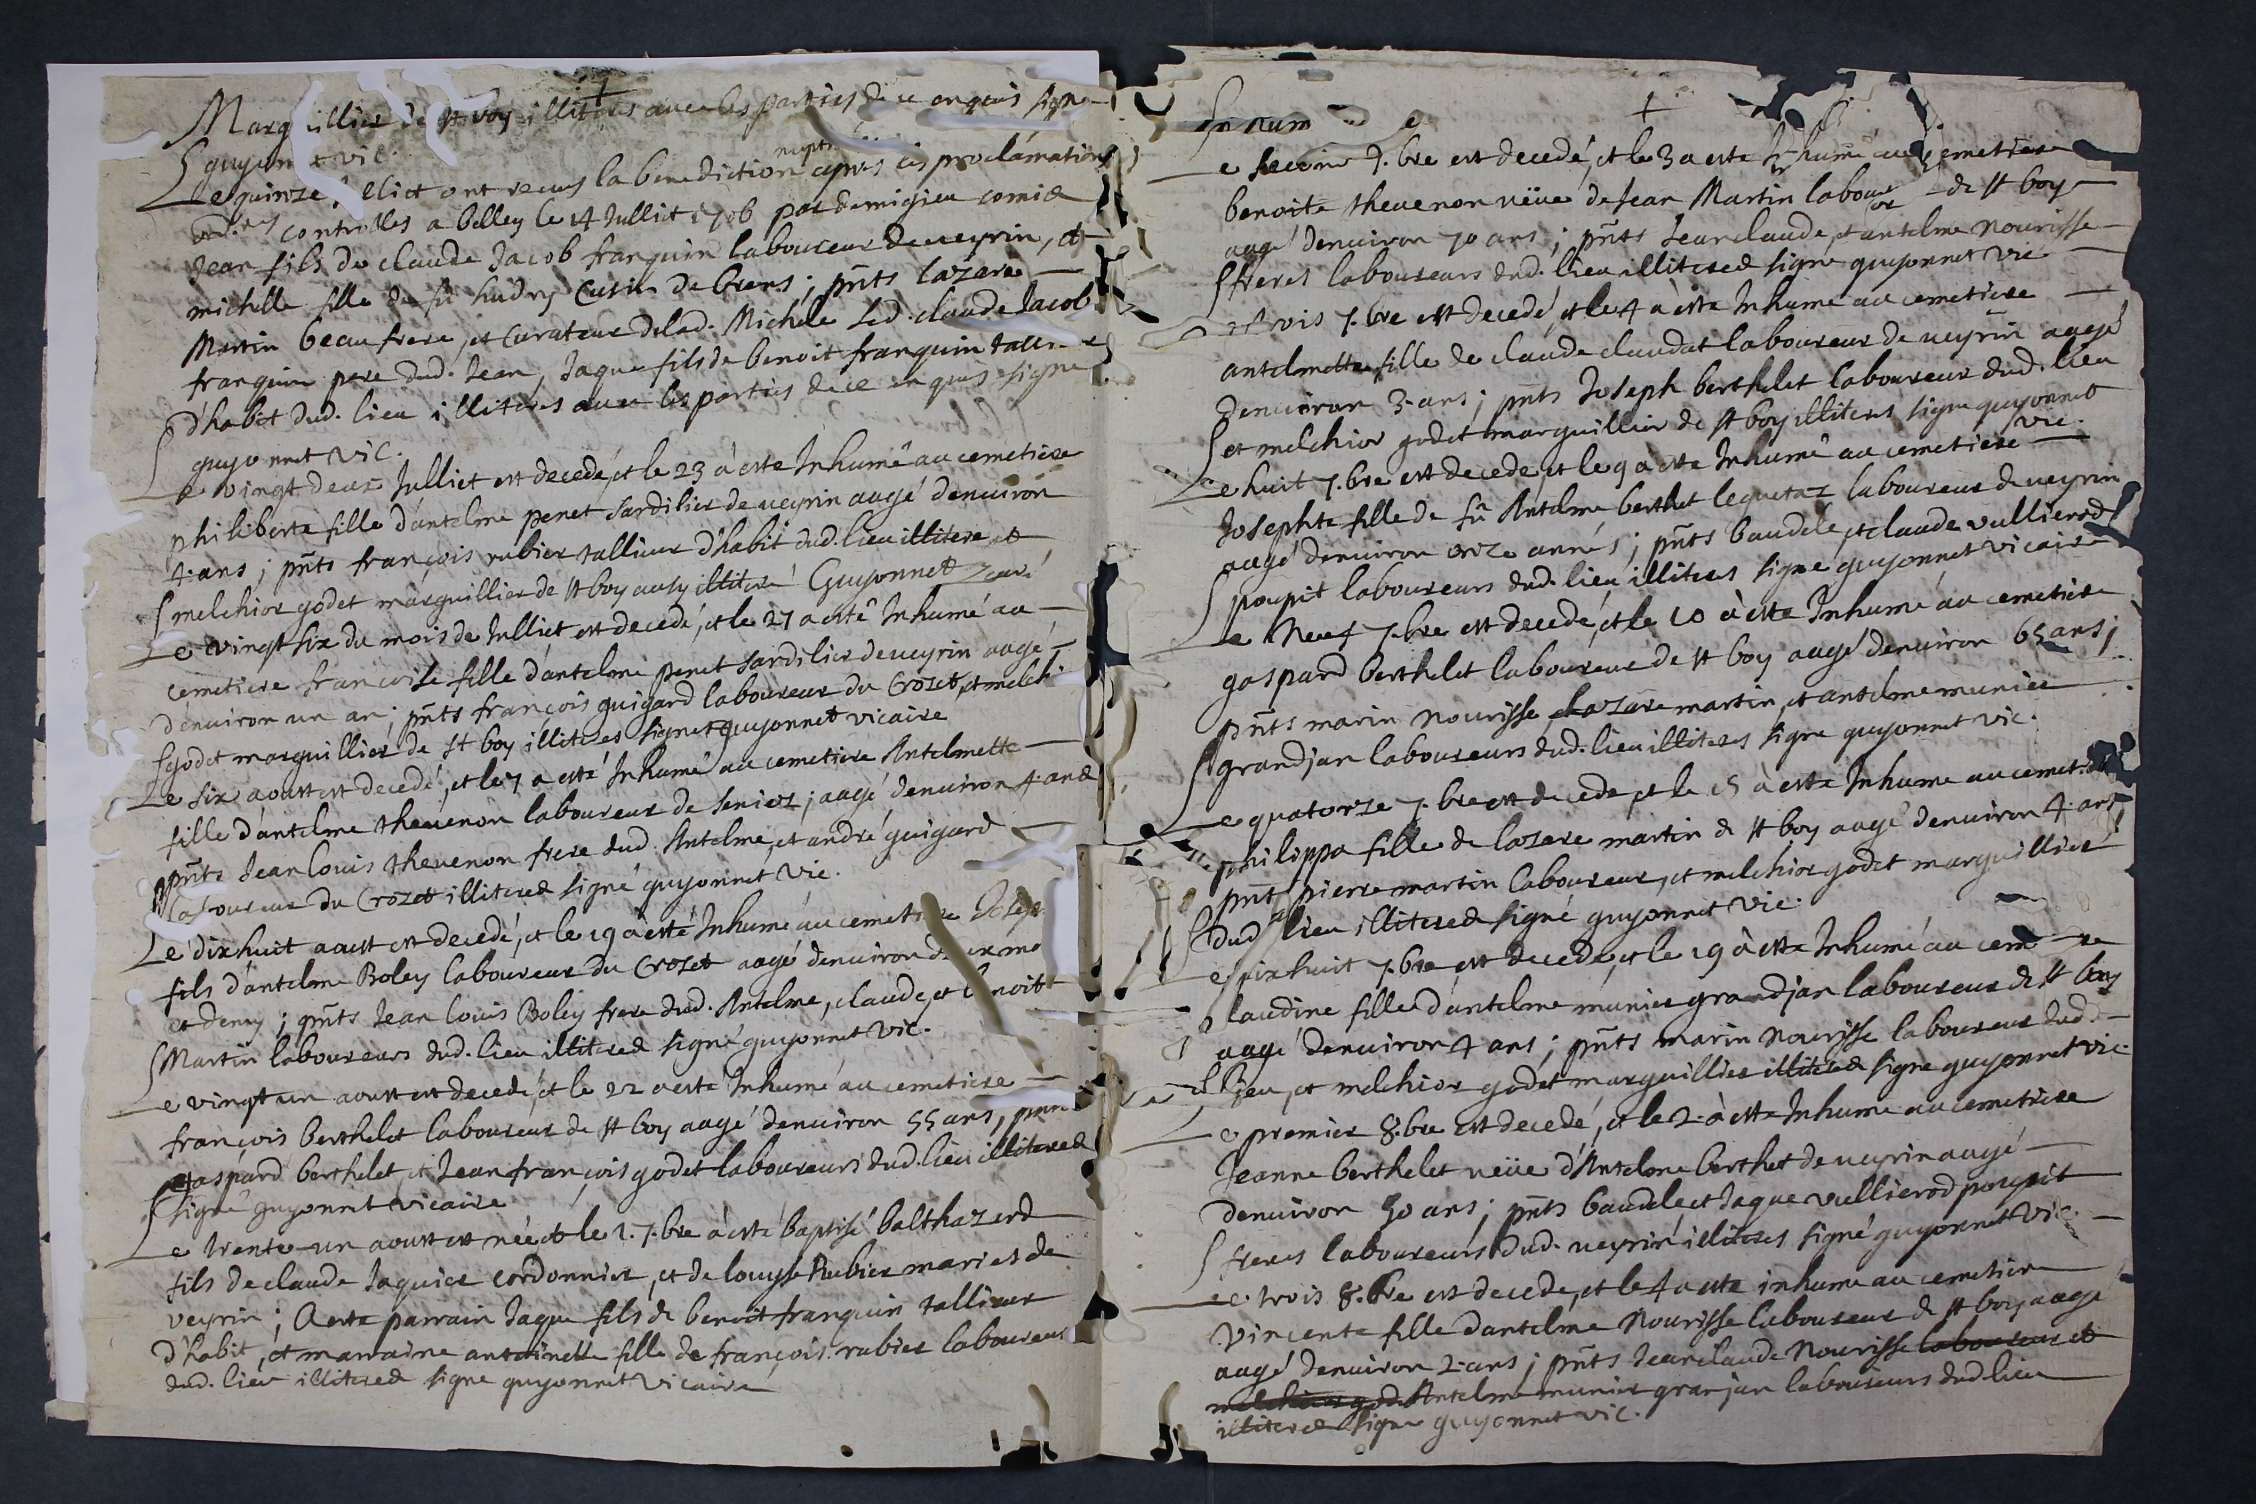 Marguillier de st boy illiteres avec les parties de ce enquis signe
guyonnet vic.
Le quinze Julliet ont receus la benediction nuptia apres les proclamations
ord.res controlles a belley le 14 Julliet 1706 par demigieu comis
Jean fils de claude Jacob franquin laboureur de veyrin, et
michelle fille de fû hudry Cusin de brens; pnts lazare
Martin beaufrere, et Curateur de lad. Michele led. claude Jacob
franquin pere dud. Jean, Jaque fils de benoit franquin tallieur
d'habit dud. lieu illiteres avec les parties de ce enquis signe
guyonnet vic.
Le vingt deux Julliet est decedé, et le 23 à esté Inhumé au cemetiere
philiberte fille d'antelme penet sardilier de veyrin aagé denuiron
4. ans; pnts françois rubier tallieur d'habit dud. lieu illitere et
melchior godet marguillier de st boy ausy illiteré Guyonnet
Le vingt six du mois de Julliet est decedé, et le 27 a esté Inhumé au
cemetiere françoise fille d'antelme penet sardilier de veyrin aagé
d'enuiron un an; pnts françois guigard laboureur du Crozet, et melchi
godet marguillier de st boy illiteres signe guyonnet vicaire
Le six aoust est decedé, et le 7 a esté Inhumé au cemetiere Antelmette
fille d'antelme thevenon laboureur de seniez; aagé denuiron 4. ans
pnts Jean louis thevenon frere dud. Antelme, et andré guigard
laboureur du Crozet illiteres signé guyonnet vic.
Le dixhuit aoust est decedé, et le 19 à esté Inhumé au cemetiere Joseph
fils d'antelme Boley laboureur du Crozet aagé denuiron deux mo
et demy; pnts Jean louis Boley frere dud. Antelme, claude, et benoit
Martin laboureurs dud. lieu illiteres signé guyonnet vic.
Le vingt un aoust est decedé, et le 22 a esté Inhumé au cemetiere
françois berthelet laboureur de st boy aagé denuiron 55 ans, pnts
gaspard berthelet, et Jean françois godet laboureurs dud. lieu illiteres
signé guyonnet vicaire
Le trente-un aoust est née et le 2. 7.bre à esté baptisé balthazard
fils de claude Jaquier cordonnier, et de louyse Rubier maries de
veyrin; A esté parrain Jaque fils de benoit franquin tallieur
d'habit, et marraine antoinette fille de françois rubier laboureur
dud. lieu illiteres signe guyonnet vicaire
Le second 7.bre est decedé, et le 3 a esté Inhumé au cemetiere
benoite thevenon veüve de Jean Martin laboureur de st boy
aagé denuiron 70 ans; pnts Jean claude, et antelme Nourisse
freres laboureurs dud. lieu illiteres signe guyonnet vic
Le trois 7.bre est decedé, et le 4 à esté Inhumé au cemetiere
antelmette fille de claude claudat laboureur de veyrin aagé
denuiron 3. ans; pnts Joseph berthelet laboureur dud. lieu
et melchior godet marguillier de st boy illiteres signe guyonnet
vic.
Le huit 7.bre est decedé, et le 9 à esté Inhumé au cemetiere
Josephte fille de fû Antelme berthet lequetaz laboureur de veyrin
aagé denuiron onze années; pnts baudele, et claude vullierod
poupit laboureurs dud. lieu illiteres signe guyonnet vicaire
Le Neuf 7.bre est decedé, et le 10 à esté Inhumé au cemetiere
gaspard berthelet laboureur de st boy aagé denuiron 65 ans;
pnts marin nourisse lazare martin, et antelme munier
grandjan laboureurs dud. lieu illiteres signe guyonnet vic.
Le quatorze 7.bre est decedé, et le 15 à esté Inhumé au cemetiere
philippa fille de lazare martin de st boy aagé denuiron 4. ans
pnt pierre martin laboureur, et melchior godet marguillier
dud. lieu illiteres signé guyonnet vic.
Le dixhuit 7.bre est decedé, et le 19 à esté Inhumé au cemetiere
claudine fille d'antelme munier grandjan laboureur de st boy
aagé denuiron 4 ans; pnts marin Nourisse laboureur dud.
lieu, et melchior godet marguillier illiteres signe guyonnet vic.
Le premier 8.bre est decedé, et le 2. à esté Inhumé au cemetiere
Jeanne berthelet veüve d'Antelme berthet de veyrin aagé
denuiron 50 ans; pnts baudele et Jaque vullierod poupit
freres laboureurs dud. veyrin illiteres signé guyonnet vic.
Le trois 8.bre est decedé, et le 4 a esté inhumé au cemetiere
Vincente fille d'antelme Nourisse laboureur de st boy aagé
aagé denuiron 2. ans; pnts Jean claude Nourisse laboureur et
melchior godet Antelme munier granjan laboureurs dud. lieu
illiteres signe guyonnet vic.